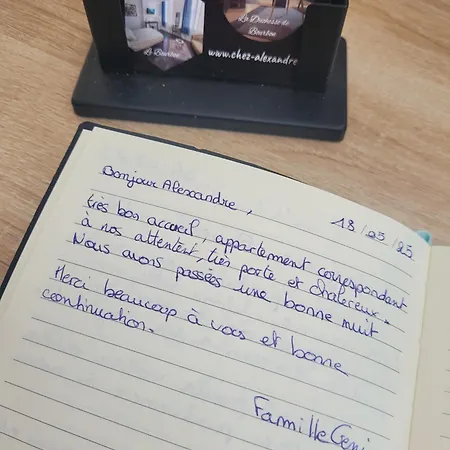 Le Bourbon
La Duchesse de
Bourbon
www.chez-alexandre
Bonjour Alexandre,
18/05/25
très bon accueil, appartement correspondent
à nos attentent, très porte et chalereux.
Nous avons passées une bonne nuit
Merci beaucoup à vous et bonne
continuation.
Famille